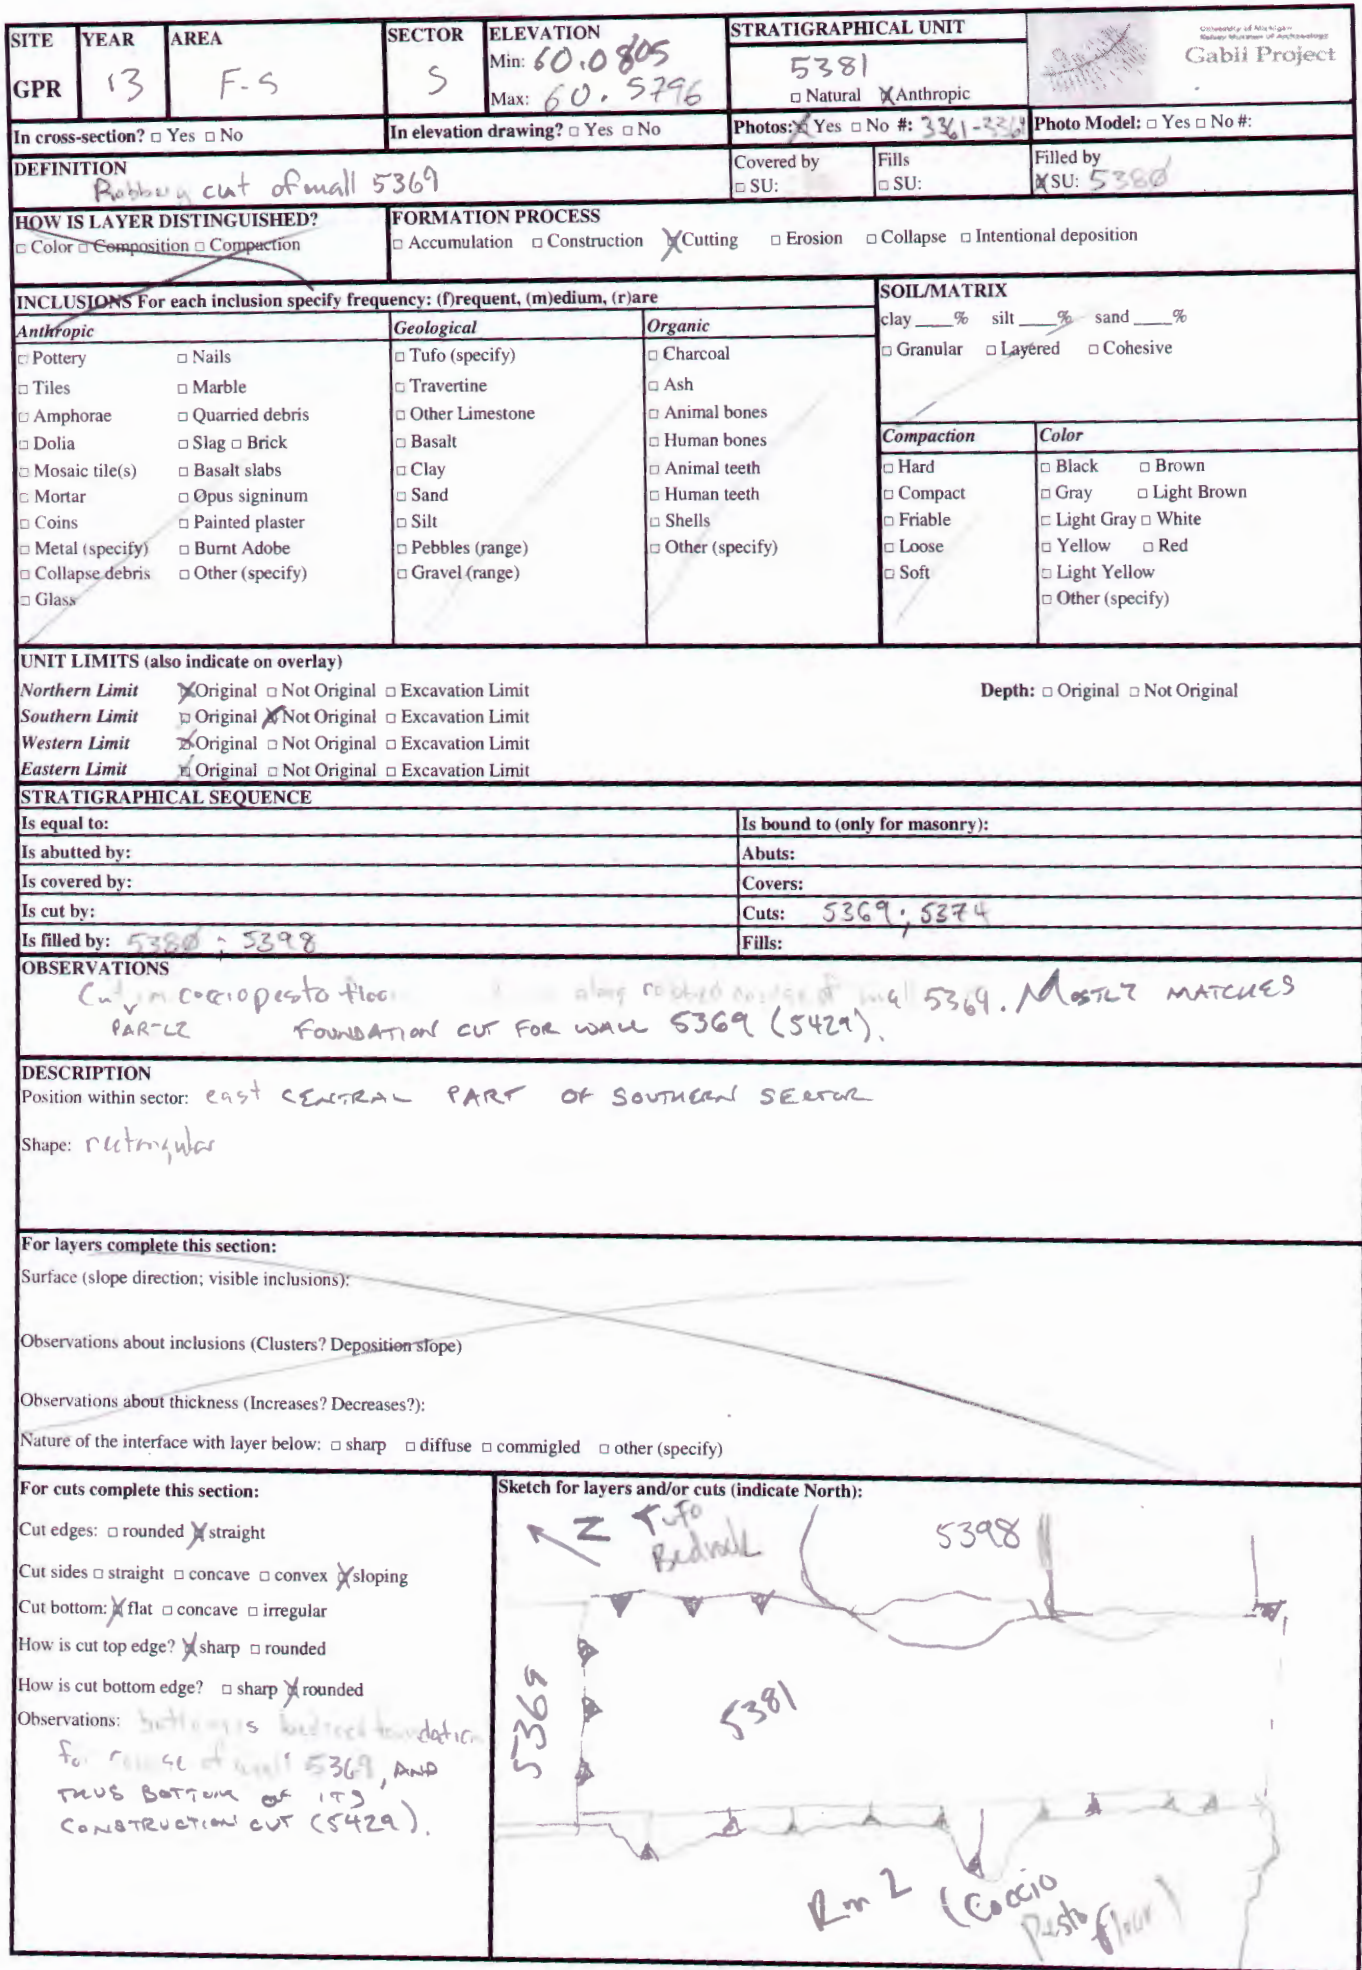 SITE YEAR AREA SECTOR ELEVATION STRATIGRAPHICAL UNIT
University of Michigan
Kelsey Museum of Archaeology
Gabii Project
GPR 13 F-S S
Min: 60.0805
Max: 60.5796
5381
□ Natural ☒ Anthropic
In cross-section? □ Yes □ No In elevation drawing? □ Yes □ No Photos: ☒ Yes □ No #: 3361-3364 Photo Model: □ Yes □ No #:
DEFINITION
Robbery cut of wall 5369
Covered by
□ SU:
Fills
□ SU:
Filled by
☒ SU: 5380
HOW IS LAYER DISTINGUISHED?
□ Color □ Composition □ Compaction
FORMATION PROCESS
□ Accumulation □ Construction ☒ Cutting □ Erosion □ Collapse □ Intentional deposition
INCLUSIONS For each inclusion specify frequency: (f)requent, (m)edium, (r)are
Anthropic
□ Pottery □ Nails
□ Tiles □ Marble
□ Amphorae □ Quarried debris
□ Dolia □ Slag □ Brick
□ Mosaic tile(s) □ Basalt slabs
□ Mortar □ Opus signinum
□ Coins □ Painted plaster
□ Metal (specify) □ Burnt Adobe
□ Collapse debris □ Other (specify)
□ Glass
Geological
□ Tufo (specify)
□ Travertine
□ Other Limestone
□ Basalt
□ Clay
□ Sand
□ Silt
□ Pebbles (range)
□ Gravel (range)
Organic
□ Charcoal
□ Ash
□ Animal bones
□ Human bones
□ Animal teeth
□ Human teeth
□ Shells
□ Other (specify)
SOIL/MATRIX
clay ____% silt ____% sand ____%
□ Granular □ Layered □ Cohesive
Compaction
□ Hard
□ Compact
□ Friable
□ Loose
□ Soft
Color
□ Black □ Brown
□ Gray □ Light Brown
□ Light Gray □ White
□ Yellow □ Red
□ Light Yellow
□ Other (specify)
UNIT LIMITS (also indicate on overlay)
Northern Limit ☒ Original □ Not Original □ Excavation Limit Depth: □ Original □ Not Original
Southern Limit □ Original ☒ Not Original □ Excavation Limit
Western Limit ☒ Original □ Not Original □ Excavation Limit
Eastern Limit ☒ Original □ Not Original □ Excavation Limit
STRATIGRAPHICAL SEQUENCE
Is equal to: Is bound to (only for masonry):
Is abutted by: Abuts:
Is covered by: Covers:
Is cut by: Cuts: 5369; 5374
Is filled by: 5380; 5398 Fills:
OBSERVATIONS
Cut in cocciopesto floor along robbed course of wall 5369. MOSTLY MATCHES
PARTLY FOUNDATION CUT FOR WALL 5369 (5429).
DESCRIPTION
Position within sector: east CENTRAL PART OF SOUTHERN SECTOR
Shape: rectangular
For layers complete this section:
Surface (slope direction; visible inclusions):
Observations about inclusions (Clusters? Deposition slope)
Observations about thickness (Increases? Decreases?):
Nature of the interface with layer below: □ sharp □ diffuse □ commigled □ other (specify)
For cuts complete this section:
Cut edges: □ rounded ☒ straight
Cut sides □ straight □ concave □ convex ☒ sloping
Cut bottom: ☒ flat □ concave □ irregular
How is cut top edge? ☒ sharp □ rounded
How is cut bottom edge? □ sharp ☒ rounded
Observations: bottom is bedrock foundation
for course of wall 5369, AND
THUS BOTTOM OF ITS
CONSTRUCTION CUT (5429).
Sketch for layers and/or cuts (indicate North):
N
Tufo
Bedrock
5398
5369
5381
Rm 2 (Coccio
Pesto floor)